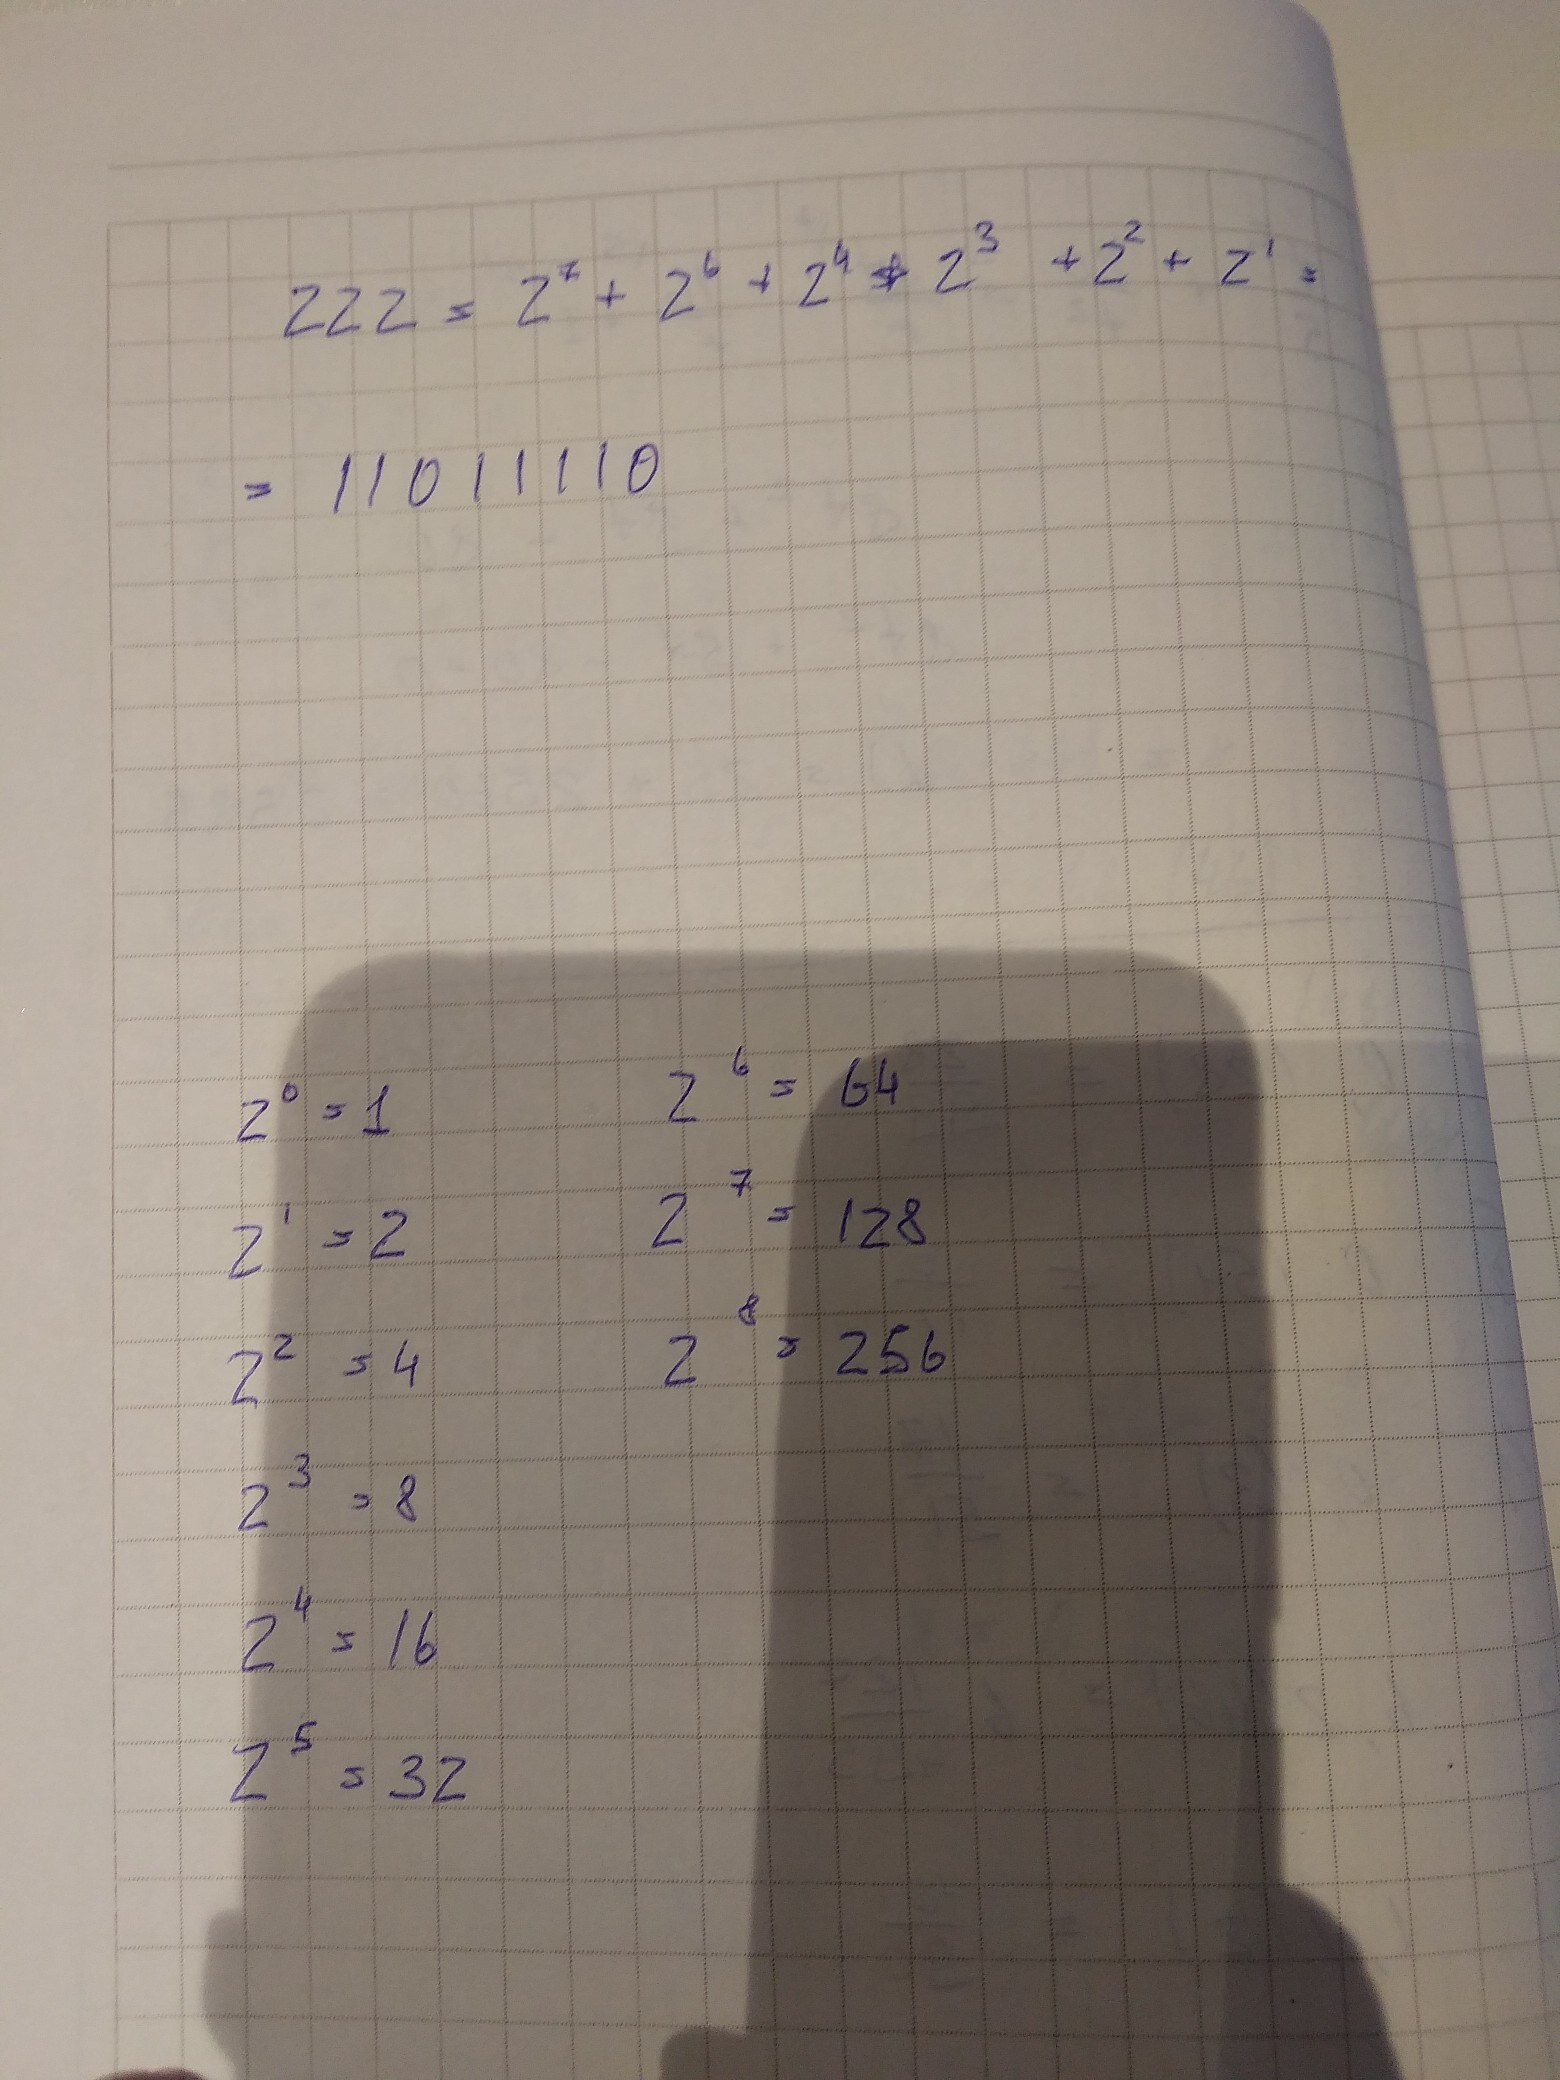 222 = 2⁷ + 2⁶ + 2⁴ + 2³ + 2² + 2¹ =
= 11011110
2⁰ = 1
2¹ = 2
2² = 4
2³ = 8
2⁴ = 16
2⁵ = 32
2⁶ = 64
2⁷ = 128
2⁸ = 256